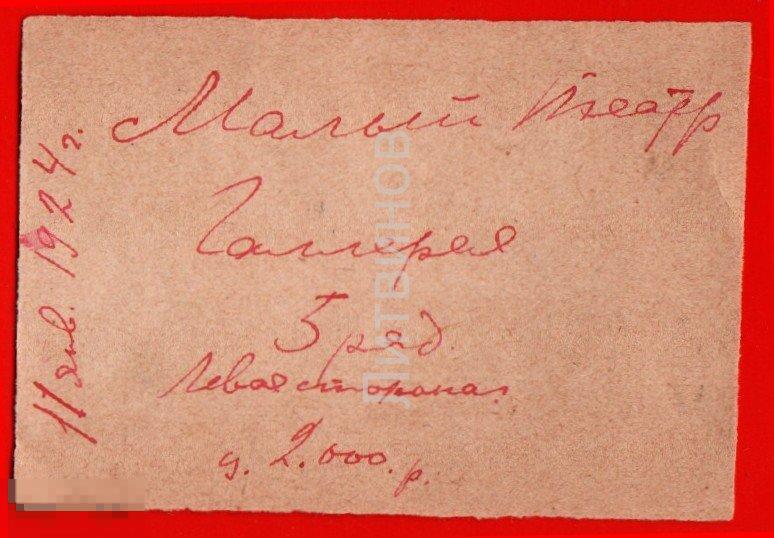 Малый театр
Галлерея
5 ряд.
Левая сторона.
ц. 2.000.р.
11 янв. 1924 г.
ЛИТВИНОВ